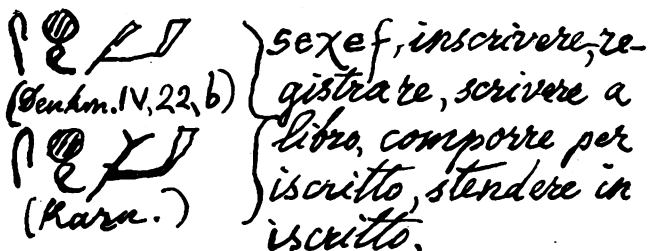 (Denkm. IV, 22, b)
(Karn.)
sexef, inscrivere, re-
gistrare, scrivere a
libro, comporre per
iscritto, stendere in
iscritto.